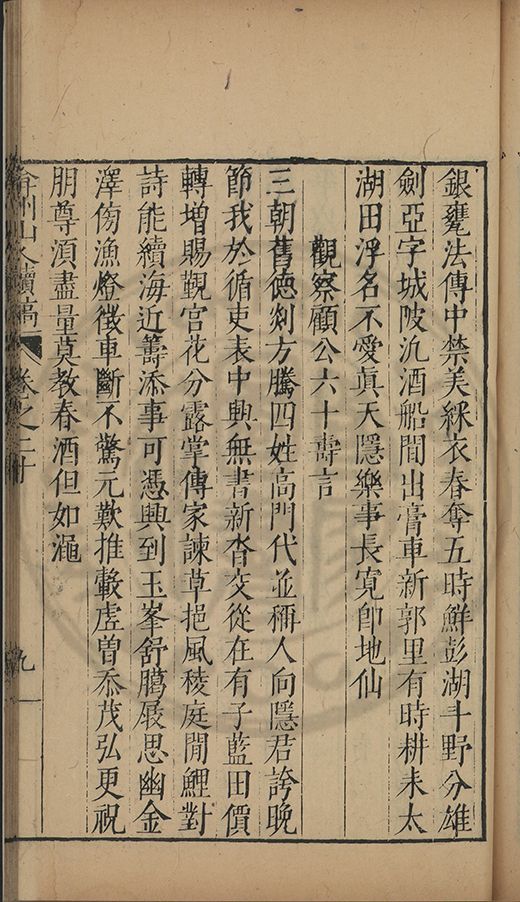 銀甕法傳中禁美綵衣春奪五時鮮彭湖斗野分雄
劍亞字城陂氿酒船閒出膏車新郭里有時耕耒太
湖田浮名不愛真天隱樂事長寬卽地仙
觀察顧公六十壽言
三朝舊德剡方騰四姓高門代並稱人向隱君誇晩
節我於循吏表中興無書新沓交從在有子藍田價
轉增賜觀宮花分露掌傳家諫草挹風稜庭閒鯉對
詩能續海近籌添事可憑興到玉峯舒臈屐思幽金
澤傍漁燈徵車斷不驚元歎推轂虗曽忝茂弘更祝
朋尊湏盡量莫教春酒但如澠
弇州山人續稿
卷之二十
九